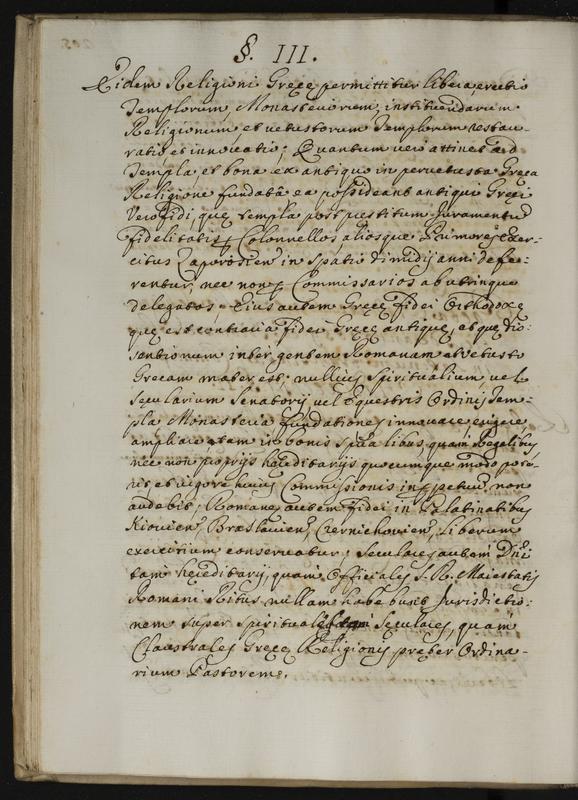 §. III.
Eidem Religioni Grecę permittitur libera, erectio
Templorum, Monasteriorum, instituendarum
Religionum et vetustorum Templorum restau-
ratio et innovatio; Quantum vero attinet ad
Templa, et bona ex antiquo in pervetusta Greca
Religione fundata ea possideant antiqui Greci
Vero fidi, quę templa post prestitum Juramentum
fidelitatis Colonnellos aliosque Primores Exer-
citus Zaporoscien in spatio dimidij anni defe-
rentur, nec non Commissarios ab utrinque
delegatos, Eius autem Gręcę fidei Orthodoxę
quę est contraria fidei Gręcę antiquę, et quę dis:
sentionum inter gentem Romanam et Vetusto
Grecam mater est; nullius Spiritualium, vel
Secularium Senatorij vel Equestris Ordinis Tem-
pla Monasteria fundationes innovare erigere,
ampliare etiam in bonis Spiritualibus quam Regalibus,
nec non proprijs hęreditarijs quocumque modo pote-
rit et vigore huius Commissionis in perpetuum non
audebit; Romane autem fidei in Palatinatibus
Kiovien, Braslavien, Czerniehovien, liberum
exercitium conservatur; Seculares autem Dni
tam hęreditarij, quam Officiales S. R. Maiestatis
Romani Ritus nullam habebunt Jurisdictio:
nem super Spirituales Sęculares, quam
Claustrales Gręcę Religionis pręter Ordina-
rium Pastorem.